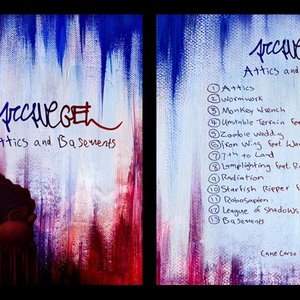 ttics and Basements
Attics and
1 Attics
2 Wormwork
3 Monkey Wrench
4 Unstable Terrain Fea
5 Zombie Wedding
6 Iron Wing Feat.
7 7th to Land
8 Lamplighting Feat.
9 Radiation
10 Starfish Ripper
11 Robosapien
12 League of Shadows
13 Basements
Cane Corso